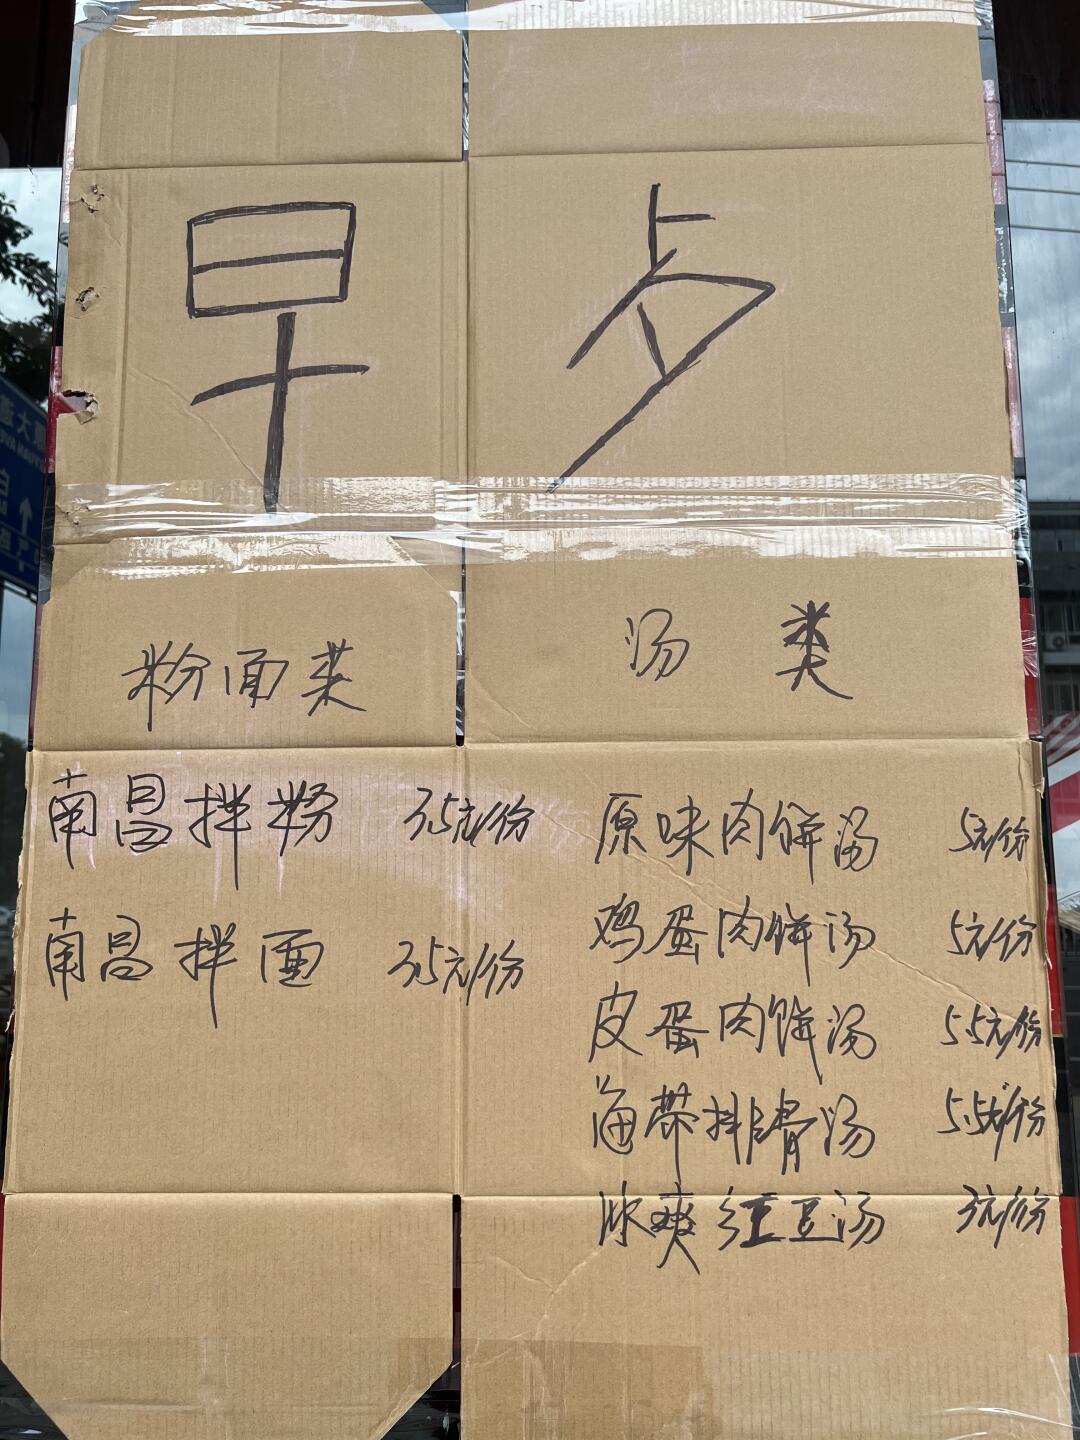 早歺
粉面菜
南昌拌粉 3.5元/份
南昌拌面 3.5元/份
汤类
原味肉饼汤 5元/份
鸡蛋肉饼汤 5元/份
皮蛋肉饼汤 5.5元/份
海带排骨汤 5.5元/份
冰爽红豆汤 3元/份